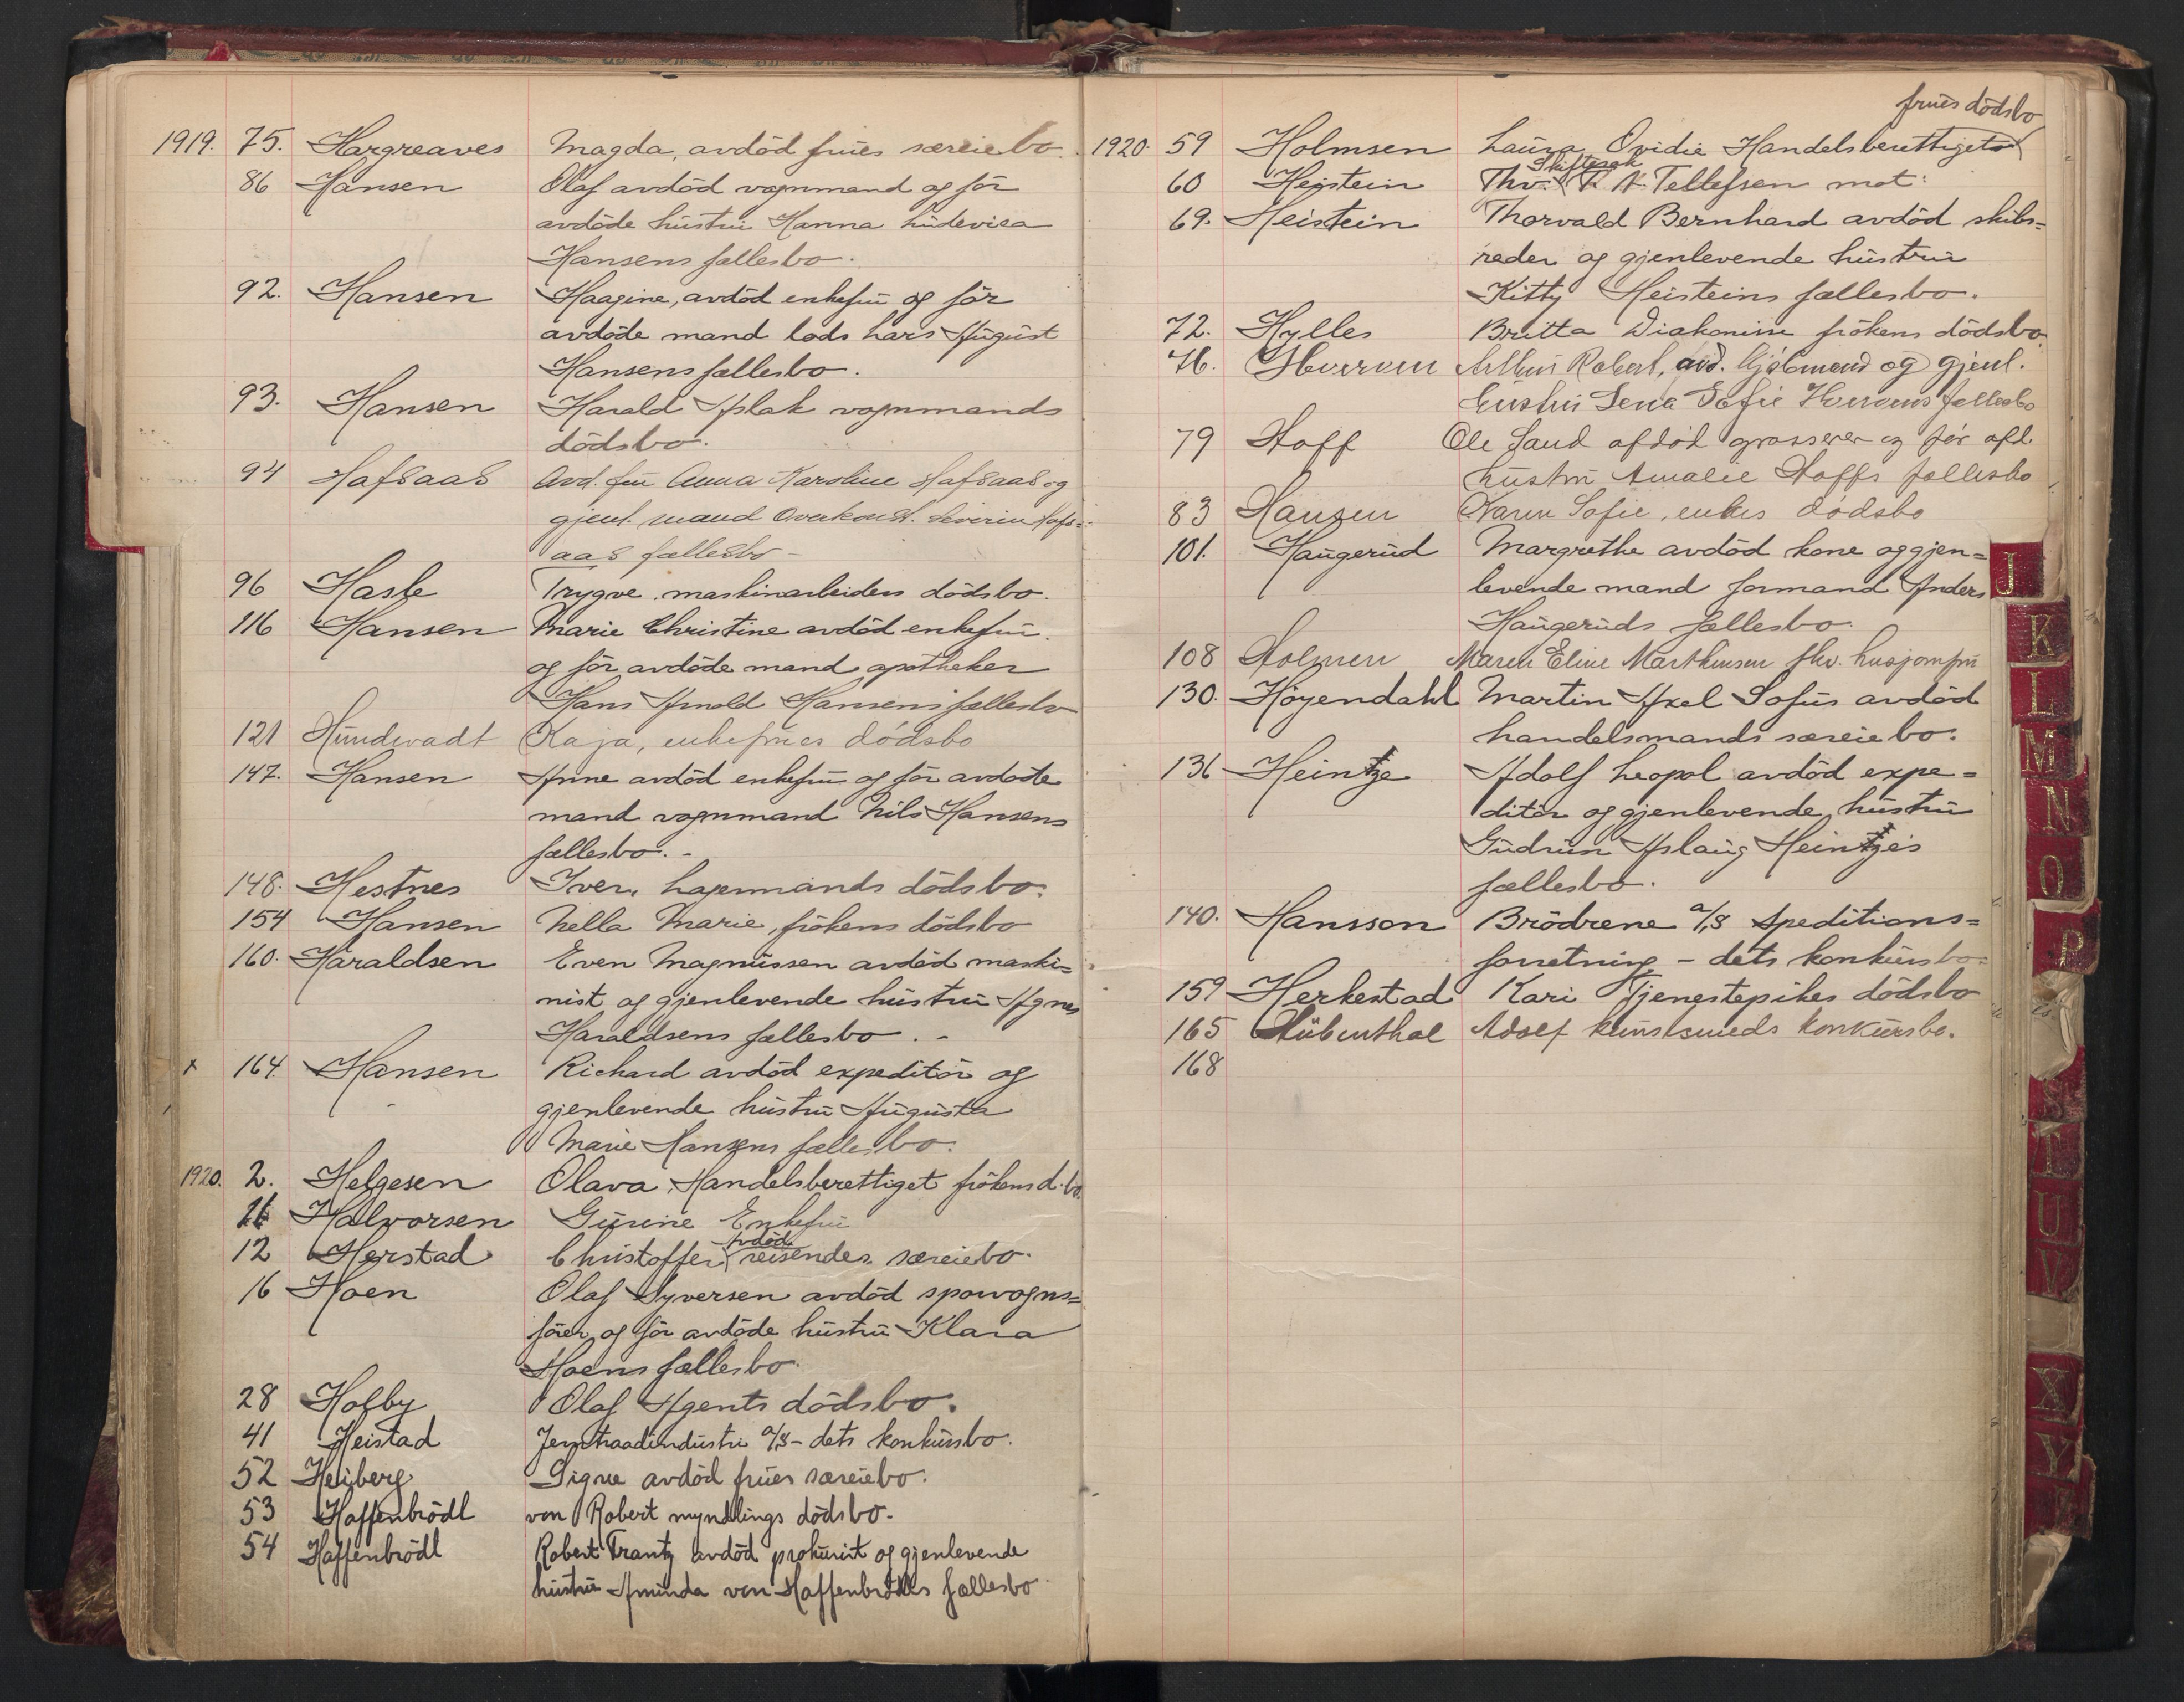 1919. 75. Hargreaves Magda, avdöd frues særeiebo.
86 Hansen Olaf avdöd vognmand og för
avdöde hustru Hanna Ludevica
Hansens fællesbo.
92. Hansen Haagine, avdöd enkefru og för
avdöde mand lods Lars August
Hansens fællesbo.
93. Hansen Harald Aslak vognmands
dödsbo.
94 Hafsaas Avd. fru Anna Karoline Hafsaas og
gjenl. mand Overkonst. Severin Hafs=
aas fællesbo –
96 Hasle Trygve maskinarbeiders dödsbo.
116 Hansen Marie Christine avdöd enkefru.
og för avdöde mand apotheker
Hans Arnold Hansens fællesbo
121 Hundevadt Kaja, enkefrues dödsbo
147. Hansen Anne avdöd enkefru og för avdöde
mand vognmand Nils Hansens
fællesbo. –
148. Hestnes Iver, Lagermands dödsbo.
154 Hansen Nella Marie, frökens dödsbo
160. Haraldsen Even Magnussen avdöd maski=
nist og gjenlevende hustru Agnes
Haraldsens fællesbo. –
x 164. Hansen Richard avdöd expeditör og
gjenlevende hustru Augusta
Marie Hansens fællesbo.
1920. 2. Helgesen Olava, Handelsberettiget frökens d.bo.
Halvorsen Gurine Enkefru
Avdöd
12 Herstad Christoffer reisendes særeiebo.
16 Hoen Olaf Syversen avdöd sporvogns=
förer og för avdöde hustru Klara
Hoens fællesbo.
28 Holby Olaf Agents dödsbo.
41 Heistad Jerntraadindustri a/s – dets konkursbo.
52 Heiberg Signe avdöd frues særeiebo.
53 Haffenbrödl von Robert myndlings dödsbo.
54 Haffenbrödl Robert Frantz avdöd prokurist og gjenlevende
hustru Aminda von Haffenbrödls fællesbo
frues dödsbo
1920. 59 Holmsen Laura Ovidie Handelsberettiget
Skiftesak
60 Heistein Thv. T. A. Tellefsen mot:
69. Heistein Thorvald Bernhard avdöd skibs=
reder og gjenlevende hustru
Kitty Heisteins fællesbo.
72. Hylles Britta Diakonisse frökens dödsbo
76. Arthur Robert, avd. og gjenl.
hustru Lena Sofie fællesbo
79 Hoff Ole Sand afdöd grosserer og för afd.
hustru Amalie Hoffs fællesbo
83 Hansen Karen Sofie, enkes dödsbo
101. Haugerud Margrethe avdöd kone og gjen=
levende mand formand Anders
Haugeruds fællesbo.
108 Holmen Maren Eline Marthinsen fhv. husjomfru
130. Höyendahl Martin Axel Sofus avdöd
handelsmands særeiebo.
136 Heintze Adolf Leopol avdöd expe=
ditör og gjenlevende hustru
Gudrun Aslaug Heintzes
fællesbo.
140. Hansson Brödrene a/s Speditions=
forretning – dets konkursbo.
159 Herkestad Kari Tjenestepikes dödsbo
165 Hübenthal Adolf kunstsmeds konkursbo.
168
J
K
L
M
N
O
P
S
T
U
V
X
Y